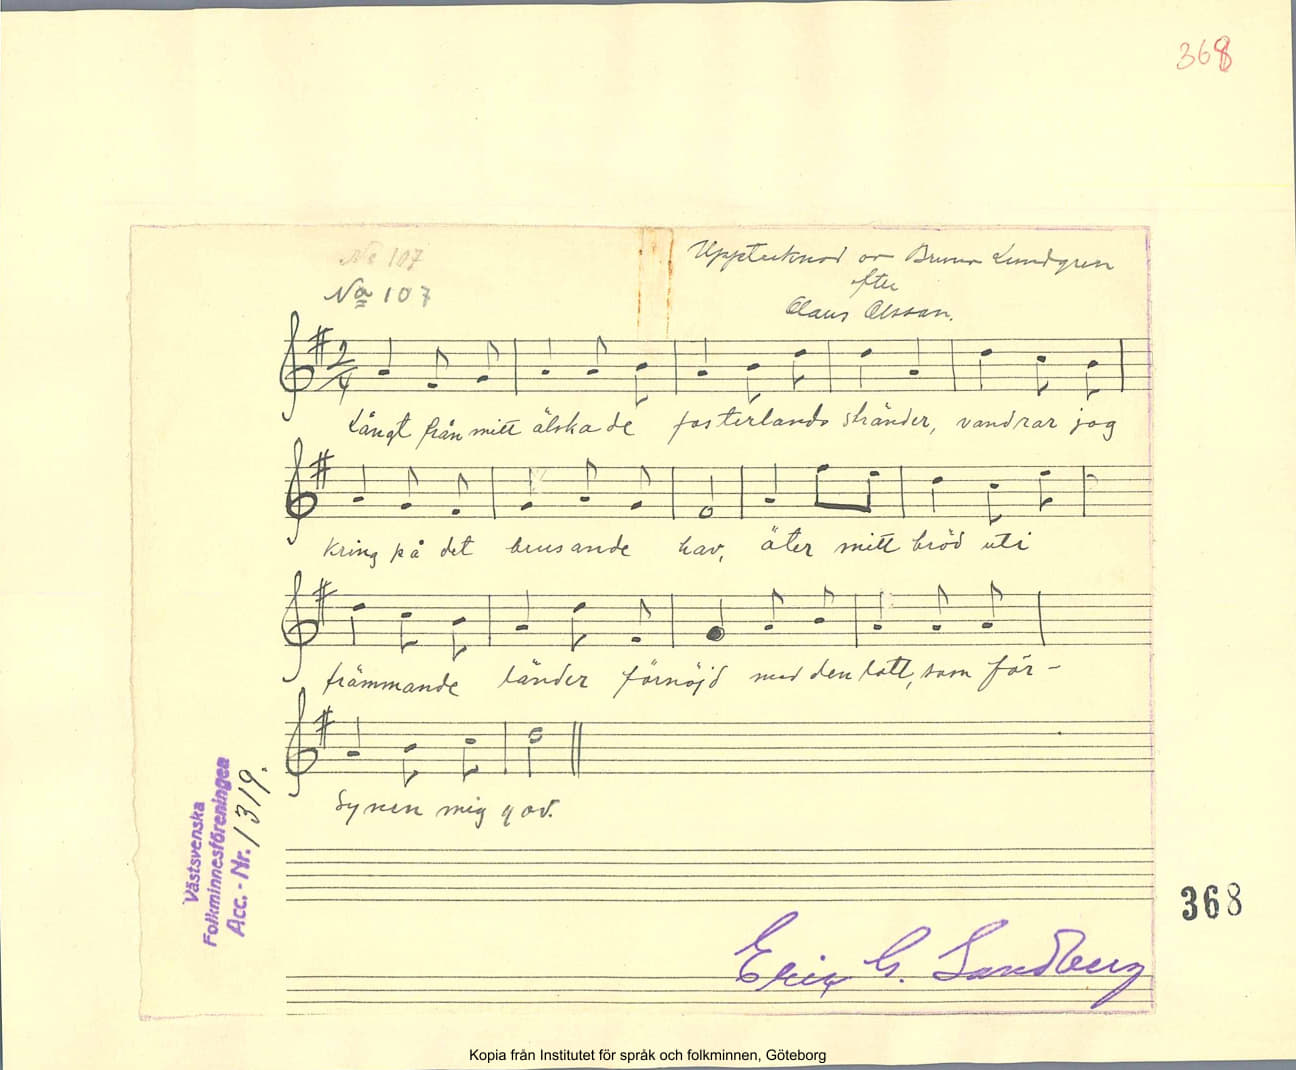 368
No 107
No 107
Upptecknad av Bruno Lundgren
efter
Claus Olsson.
2
4
Långt från mitt älskade fosterlands stränder, vandrar jag
kring på det brusande hav, äter mitt bröd uti
främmande länder förnöjd med den lott, som för-
synen mig gav.
Västsvenska
Folkminnesföreningen
Acc.-Nr. 1319.
368
Eric G. Sandberg
Kopia från Institutet för språk och folkminnen, Göteborg